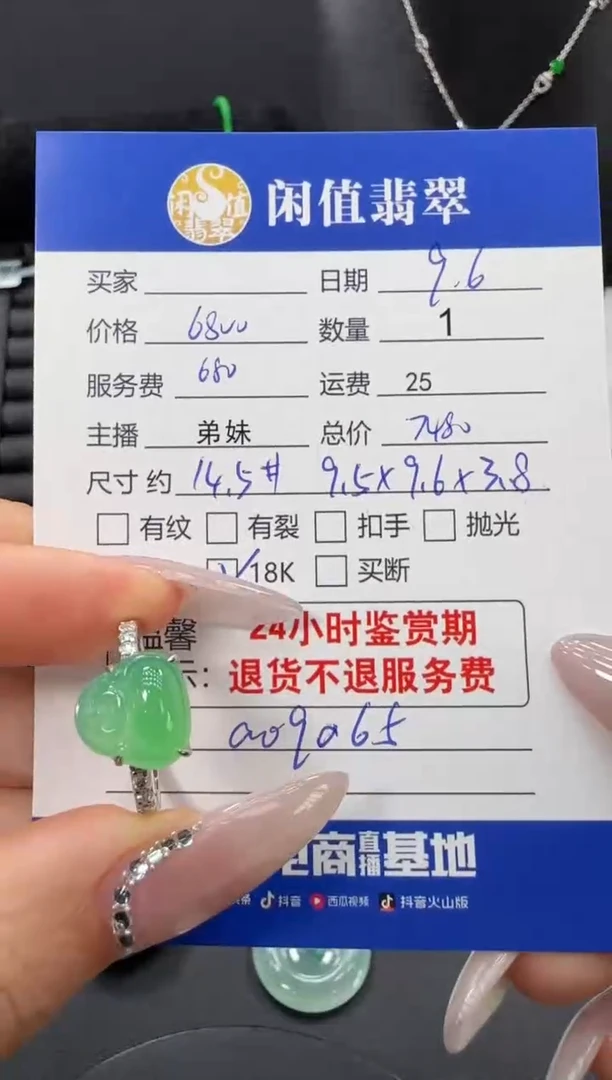 闲值翡翠
闲值翡翠
买家 日期 9.6
价格 6800 数量 1
服务费 680 运费 25
主播 弟妹 总价 7480
尺寸约 14.5# 9.5x9.6x3.8
有纹 有裂 扣手 抛光
18K 买断
温馨 24小时鉴赏期
示: 退货不退服务费
电商直播基地
头条 抖音 西瓜视频 抖音火山版